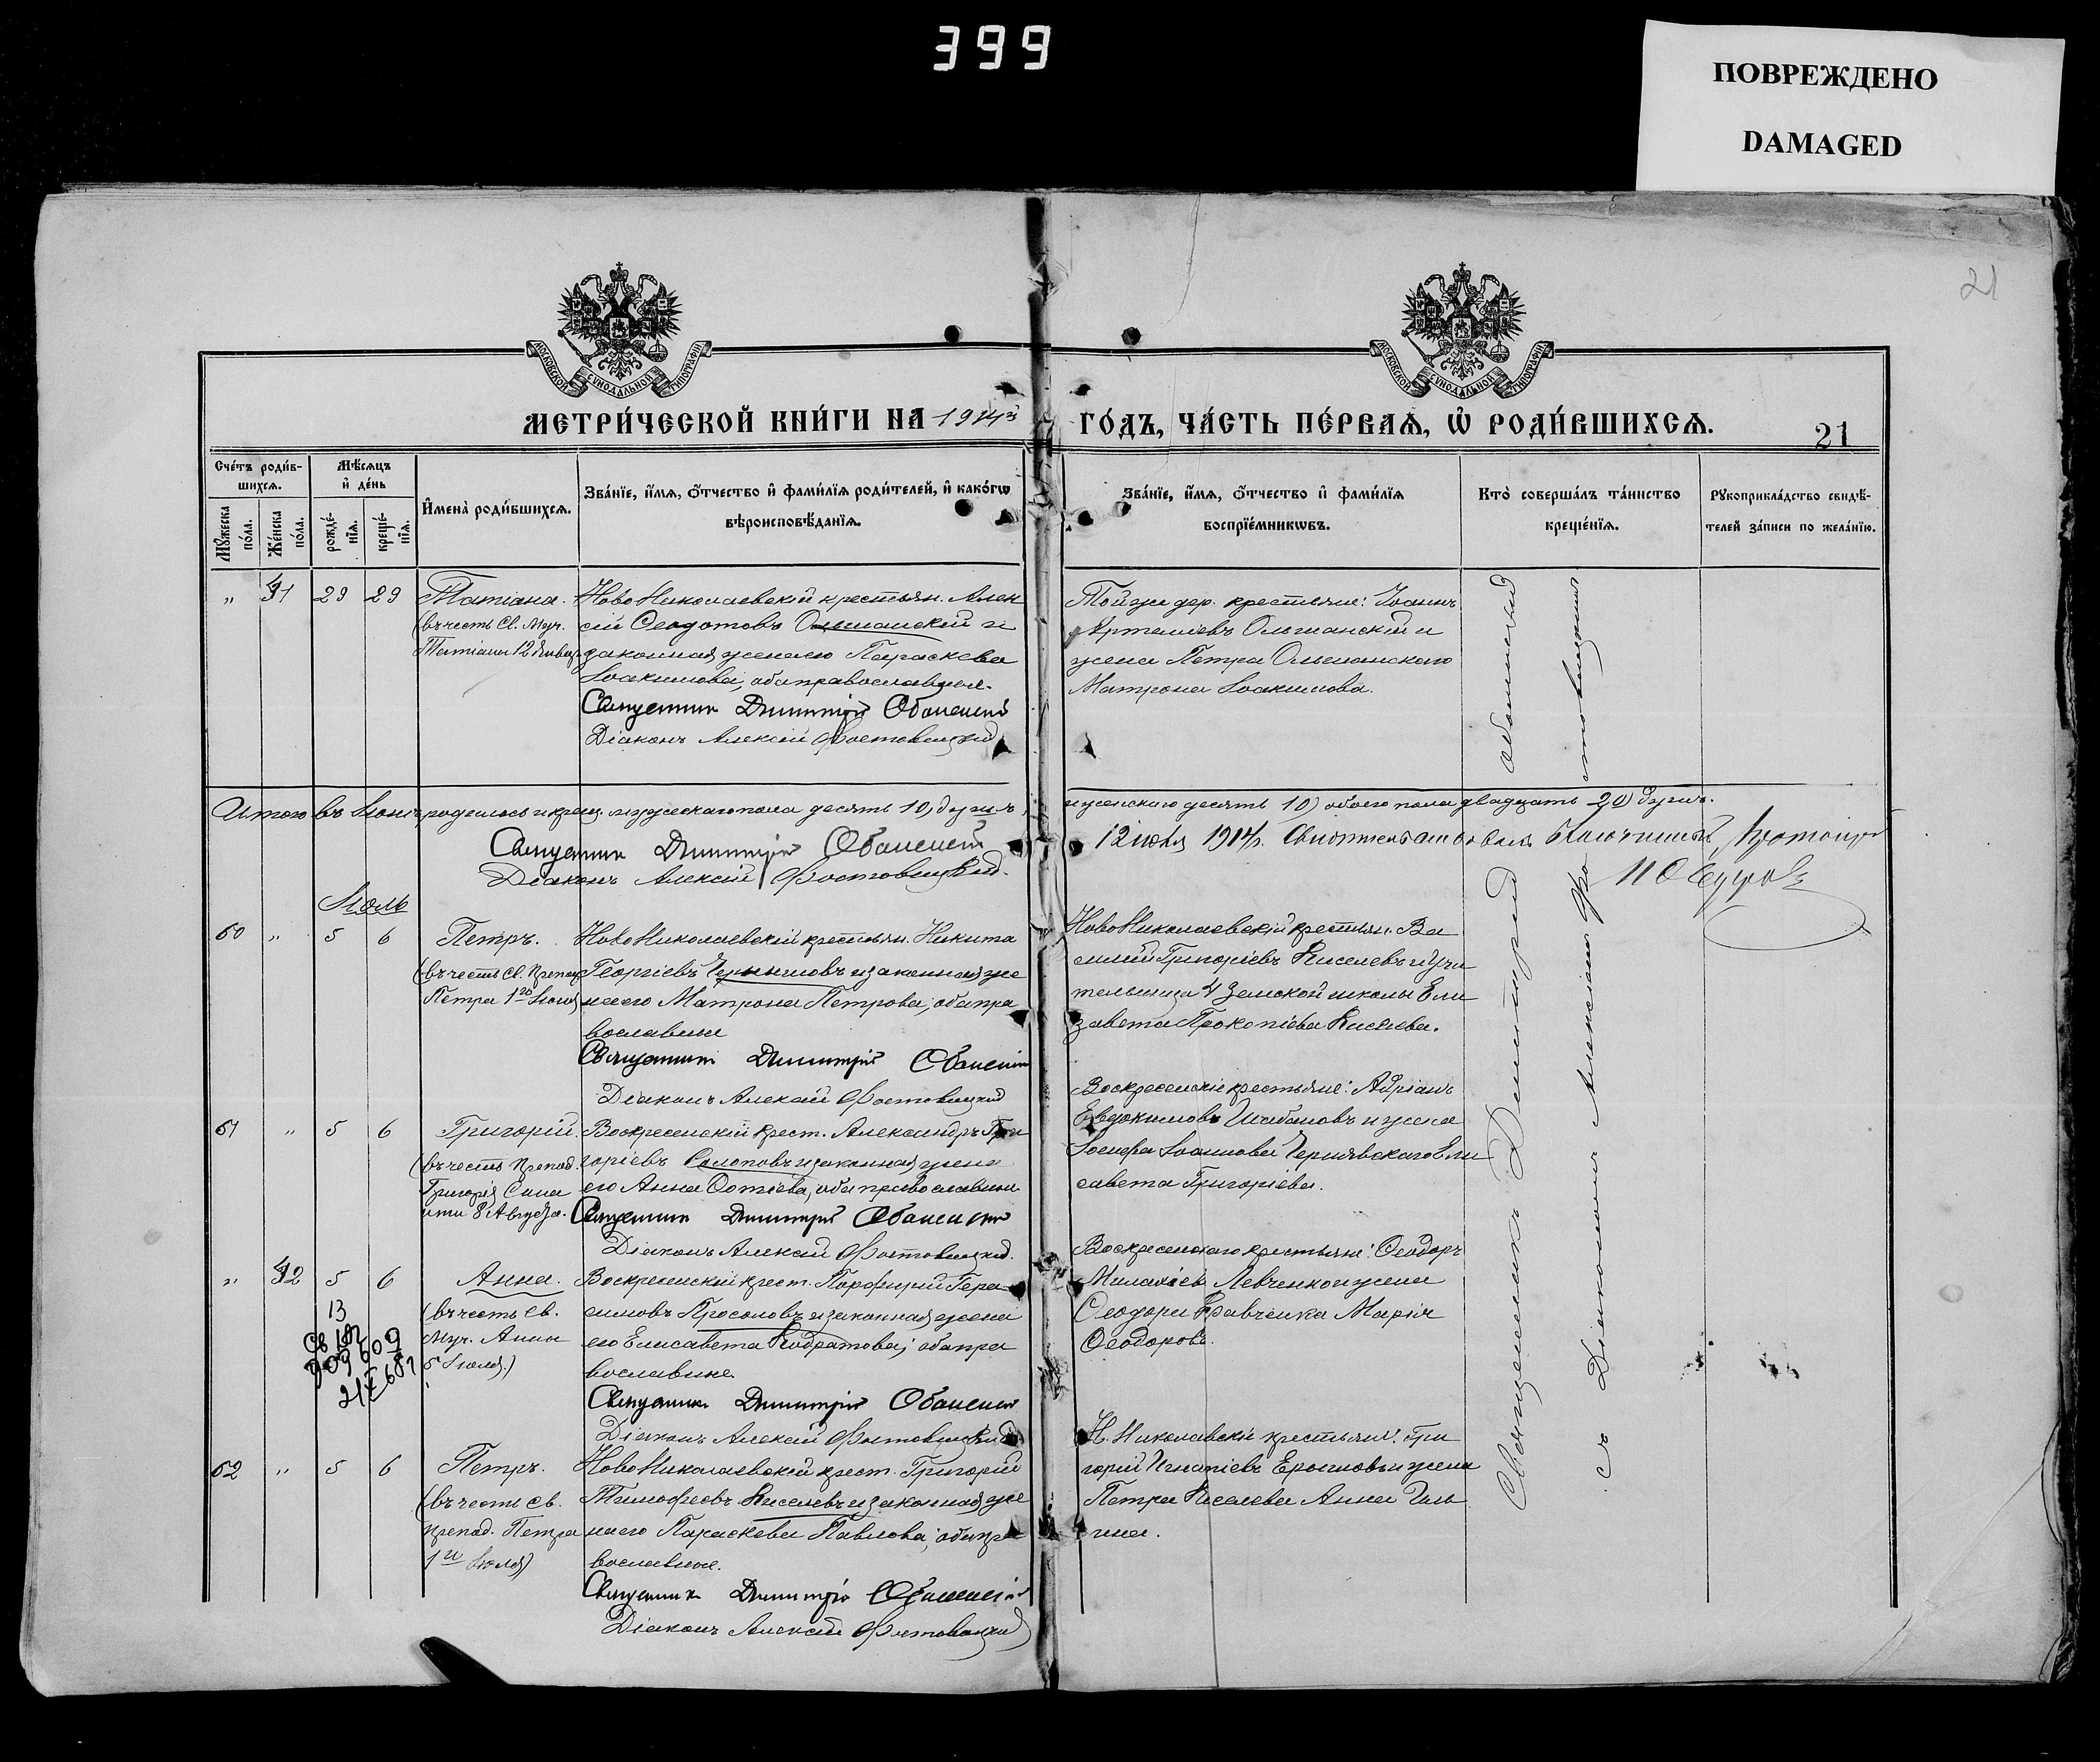 399
ПОВРЕЖДЕНО
DAMAGED
21
МОСКОВСКОЙ СУНОДАЛЬНОЙ ТИПОГРАФІИ
МОСКОВСКОЙ СУНОДАЛЬНОЙ ТИПОГРАФІИ
МЕТРИ́ЧЕСКОЙ КНИ́ГИ НА 1914
ГО́ДЪ, ЧА́СТЬ ПЕ́РВАѦ, Ѡ҆ РОДИ́ВШИХСѦ.
21
Сче́тъ роди́в-
шихсѧ.
Мѣ́сѧцъ
и҆ де́нь
Мꙋ́жеска
по́ла.
Же́нска
по́ла.
рожде́-
нїѧ.
креще́-
нїѧ.
И҆мена̀ роди́вшихсѧ.
Зва́нїе, и҆́мѧ, ѻ҆́тчество и҆ фами́лїѧ роди́телей, и҆ како́гѡ
вѣроисповѣ́данїѧ.
Зва́нїе, и҆́мѧ, ѻ҆́тчество и҆ фами́лїѧ
воспрїе́мникѡвъ.
Кто̀ соверша́лъ та́инство
креще́нїѧ.
Рꙋкоприкла́дство свидѣ́-
телей за́писи по жела́нїю.
" 41 29 29 Татіана.
(въ честь Св. Муч.
Татіаны 12 Январ.
НовоНиколаевскій крестьян. Алек
сій Ѳеодотовъ Ольшанскій и
законная жена его Параскева
Іоакимова, оба православные.
Священник Димитрій
Діаконъ Алексій
Той же дер. крестьяне: Іоаннъ
Артеміевъ Ольшанскій и
жена Петра Ольшанского
Матрона Іоакимова.
Итого въ Іюнѣ родилось и крещ. мужескаго пола десять 10) душъ,
и женскаго десять 10) обоего пола двадцать 20) душъ.
Священник Димитрій
Діаконъ Алексій
12 июля 1914 г.
Іюль
60 " 5 6 Петръ.
(въ честь Св. Препод.
Петра 1го Іюля)
НовоНиколаевскій крестьян. Никита
Георгіевъ и законная же
на его Матрона Петрова, оба пра
вославные
Священник Димитрій
Діаконъ Алексій
НовоНиколаевскій крестьян. Ва
силій Григоріевъ Киселевъ и учи
тельница Земской школы Ели
завета Прокопіева Киселева.
61 " 5 6 Григорій.
(въ честь Препод.
Григорія Сина
ита 8 Августа.
Воскресенскій крест. Александръ Гри
горіевъ Солоповъ и законная жена
его Анна Фотіева, оба православные
Священник Димитрій
Діаконъ Алексій
Воскресенскіе крестьяне: Адріанъ
Евдокимовъ Шабановъ и жена
Іосифа Іоаннова Чернявскаго Ели
савета Григоріева.
" 42 5 6 Анна.
(въ честь Св.
Муч. Анны
5 Іюля.)
13
Воскресенскій крест. Порфирій Гера
симовъ Просоловъ и законная жена
его Елисавета Кодратова, оба пра
вославные.
Священник Димитрій
Діаконъ Алексій
Воскресенскаго крестьяне: Ѳеодоръ
Левченко и жена
Ѳеодора Кравченка Марія
Ѳеодорова.
62 " 5 6 Петръ.
(въ честь Св.
препод. Петра
1го Іюля)
НовоНиколаевскій крест. Григорій
Тимофеевъ Киселевъ и законная же
на его Параскева Павлова, оба пра
вославные.
Священник Димитрій
Діаконъ Алексій
Н. Николавскіе крестьяне: Гри
горій Игнатіевъ и жена
Петра Киселева Анна Иль
ина.
Священникъ Димитрій
съ Діакономъ Алексіемъ